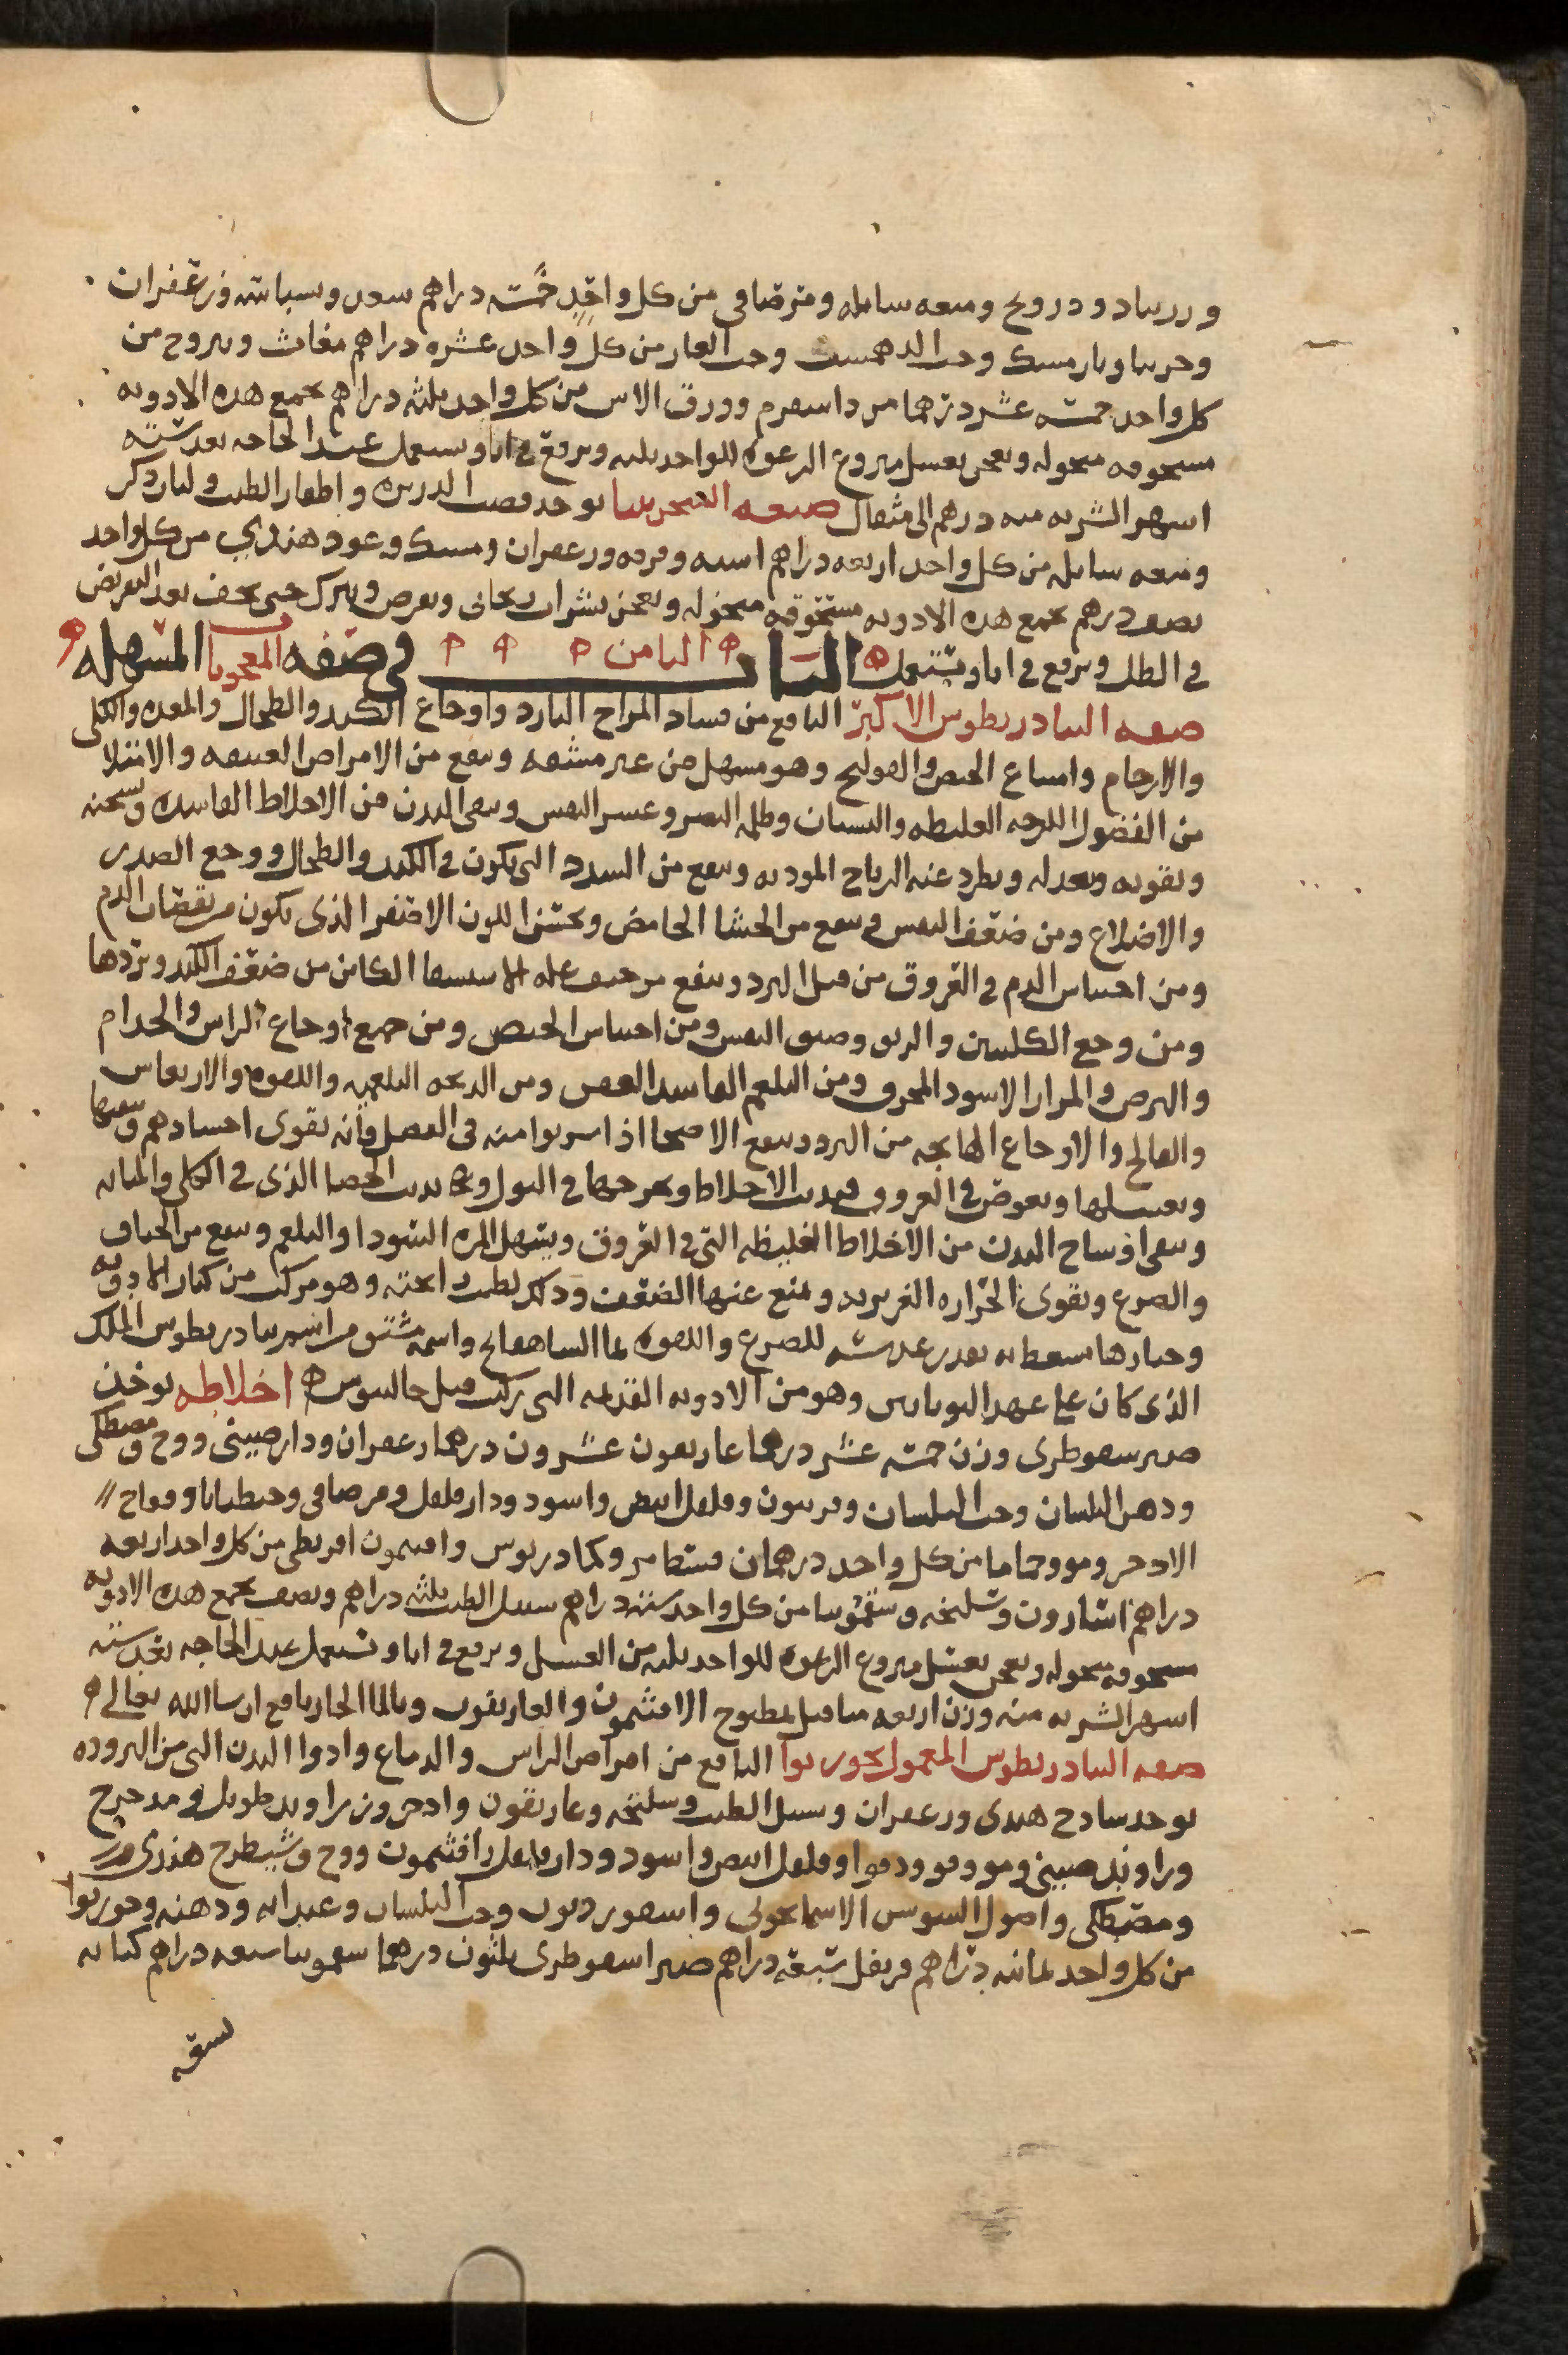 وزرنباد ودرونج وميعه سايله ومر صافي من كل واحد خمسة دراهم سعد وسباسه وزعفران
وحب الدهمست وحب الغار من كل واحد عشره دراهم مغاث ويبروح من
كل واحد خمسة عشر درهما مرداسفرم وورق الاس من كل واحد ثلثه دراهم تجمع هذه الادويه
مسحوقه منخوله وتعجن بعسل منزوع الرغوه للواحد ثلثه ويرفع في انا ويستعمل عند الحاجه بعد ستة
اشهر الشربه منه درهم الى مثقال صفه السجزينيا يوخذ قصب الدريره واظفار الطيب ولبان ذكر
وميعه سايله من كل واحد اربعه دراهم اشنه وقرفه وزعفران ومسك وعود هندي من كل واحد
نصف درهم تجمع هذه الادويه مسحوقه منخوله وتعجن بشراب ريحاني ويقرص ويترك حتى يجف بعد التقريض
في الظل ويرفع في انا ويستعمل الباب الثامن في صفه المعجونات المسهله
صفه التيادريطوس الاكبر النافع من فساد المزاج البارد واوجاع الكبد والطحال والمعده والكلى
والارحام وامتناع الحيض والقولنج وهو مسهل من غير مشقه وينفع من الامراض العتيقه والامتلا
من الفضول اللزجه الغليظه والنسيان وظلمه البصر وعسر النفس وينقي البدن من الاخلاط الفاسده ويسخنه
ويقويه ويعدله ويطرد عنه الرياح الموديه وينفع من السدد التي تكون في الكبد والطحال ووجع الصدر
والاضلاع ومن ضعف النفس وينفع من الجشا الحامض ويحسن اللون الاصفر الذي يكون من نقصان الدم
ومن احتباس الدم في العروق من قبل البرد وينفع من جميع علة الاستسقا الكاين من ضعف الكبد وبردها
ومن وجع الكليتين والربو وضيق النفس ومن احتباس الحيض ومن جميع اوجاع الراس والجدام
والبرص والمرار الاسود المحرق ومن البلغم الفاسد العفص ومن الدبحه البلغميه واللقوه والارتعاش
والفالج والاوجاع الهايجه من البرد وينفع الاصحا اذا شربوا منه في الفصل فانه يقوي اجسادهم وينقيها
ويغسلها ويغوص في العروق فيديب الاخلاط ويخرجها في البول ويديب الحصا الذي في الكلى والمثانه
وينقي اوساخ البدن من الاخلاط الغليظه التي في العروق ويسهل المره السودا والبلغم وينفع من الخناق
والصرع ويقوي الحراره الغريزيه ويمنع عنها الضعف وذلك لطيب رايحته وهو مركب من كبار الادويه
وخيارها يسعط به بقدر عدسه للصرع واللقوه بما الشاهفانج واسمه مشتق من اسم تيادريطوس الملك
الذي كان على عهد اليونانيين وهو من الادويه القديمه التي ركبت قبل جالينوس اخلاطه يوخذ
صبر سقوطري وزن خمسة عشر درهما غاريقون عشرون درهما زعفران ودارصيني ووج ومصطكى
ودهن البلسان وحب البلسان وفربيون وفلفل ابيض واسود ودارفلفل ومر صافي وجنطيانا وفقاح
الادخر ومو وحماما من كل واحد درهمان قسط مر وكمادريوس وافتيمون اقريطي من كل واحد اربعه
دراهم اسارون وسليخه وسقمونيا من كل واحد ستة دراهم سنبل الطيب ثلثه دراهم ونصف تجمع هذه الادويه
مسحوقه منخوله وتعجن بعسل منزوع الرغوه للواحد ثلثه من العسل ويرفع في انا ويستعمل عند الحاجه بعد ستة
اشهر الشربه منه وزن اربعه مثاقيل بمطبوخ الافتيمون والغاريقون وبالما الحار نافع ان شا الله تعالى
صفه التيادريطوس المعمول بجوزبوا النافع من امراض الراس والدماغ وادوا البدن التي من البروده
يوخذ سادج هندي وزعفران وسنبل الطيب وسليخه وغاريقون وادخر وزراوند طويل ومدحرج
وراوند صيني ومو وفو ودوقوا وفلفل ابيض واسود ودارفلفل وافتيمون ووج وشيطرج هندي ومر
ومصطكى واصول السوس الاسمانجوني واسقورديون وحب البلسان وعيدانه ودهنه وجوزبوا
من كل واحد ثمانيه دراهم قرنفل سبعه دراهم صبر اسقوطري ثلثون درهما سقمونيا سبعه دراهم كبابه